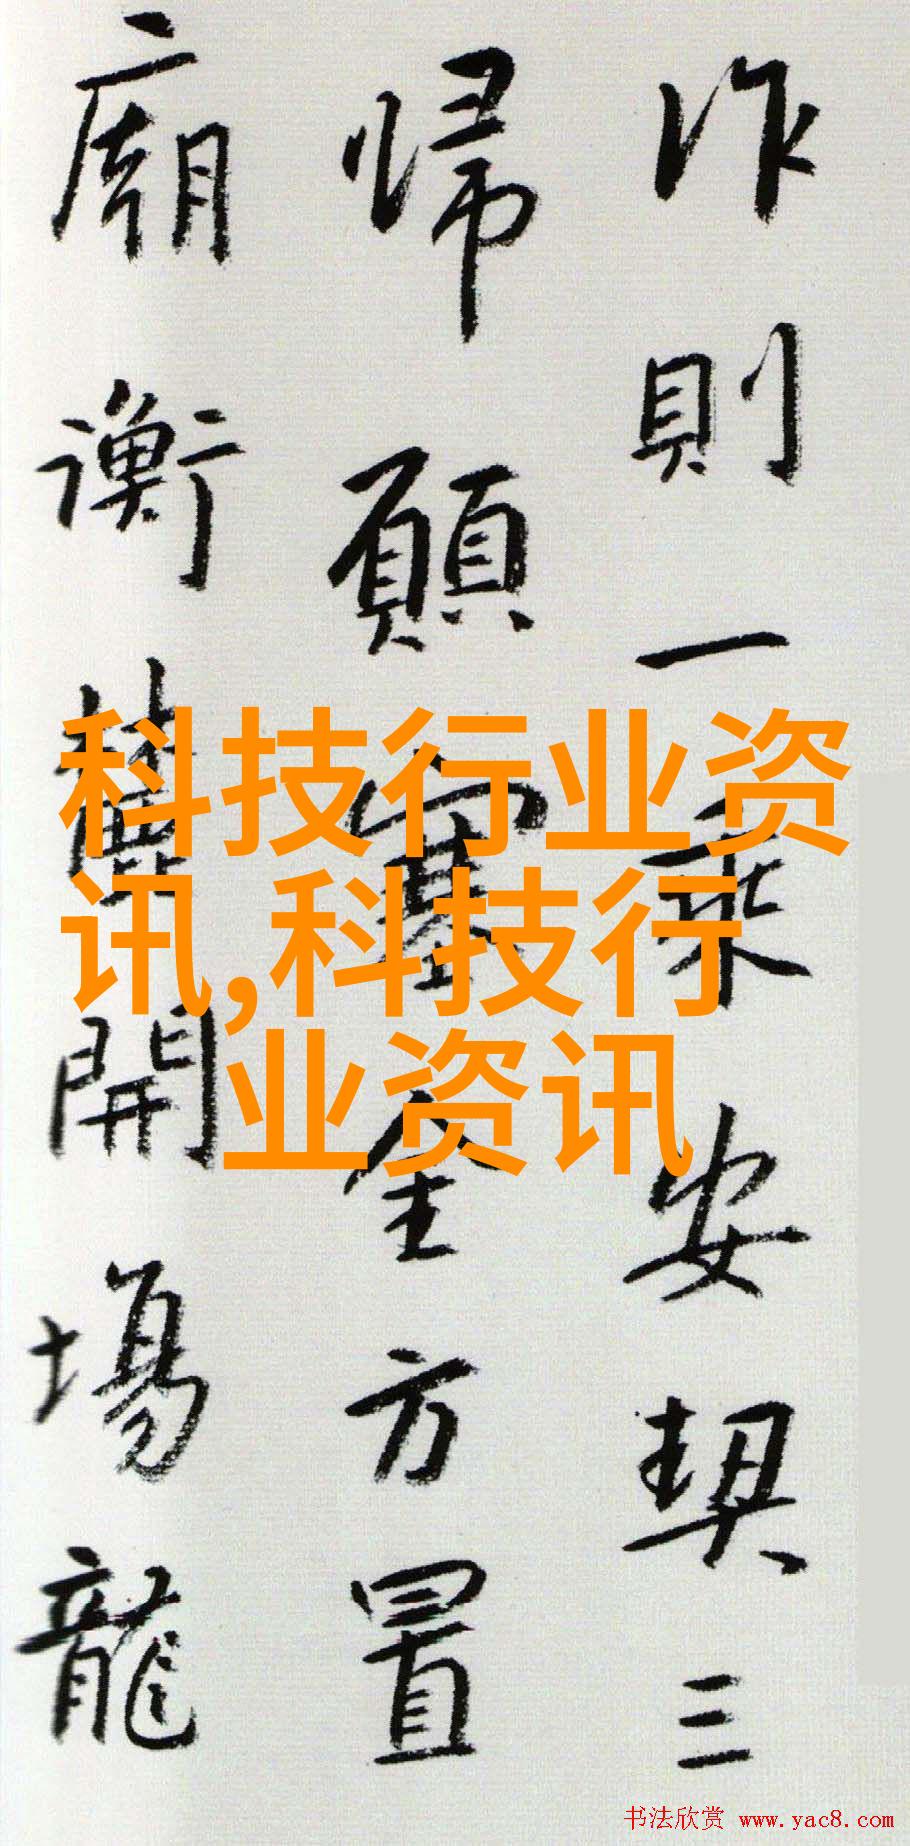 作則一乘安契三
歸願寰全方置
廟衡麓開場龍
科技行业资
讯,科技行
业资讯
书法欣赏 www.yac8.com